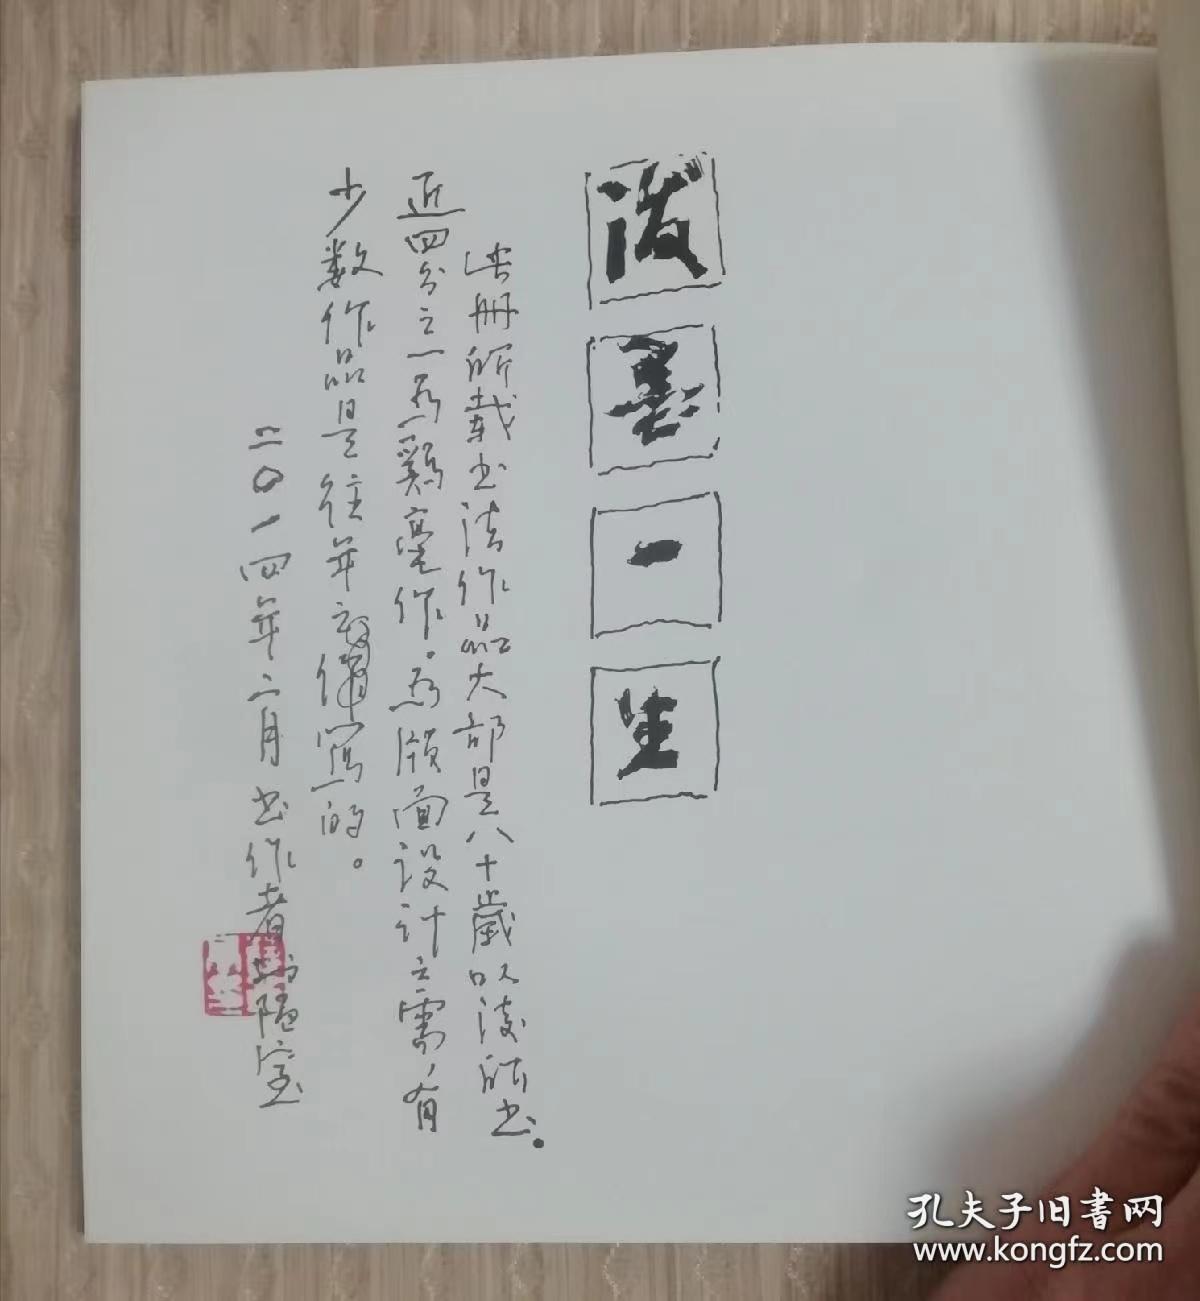 泼墨一生
此册所载书法作品大部是八十歲以後所书。
近四分之一為鷄毫作。為版面设计之需，有
少数作品是往年之 寫的。
二〇一四年二月书作者 隐室
孔夫子旧書网
www.kongfz.com